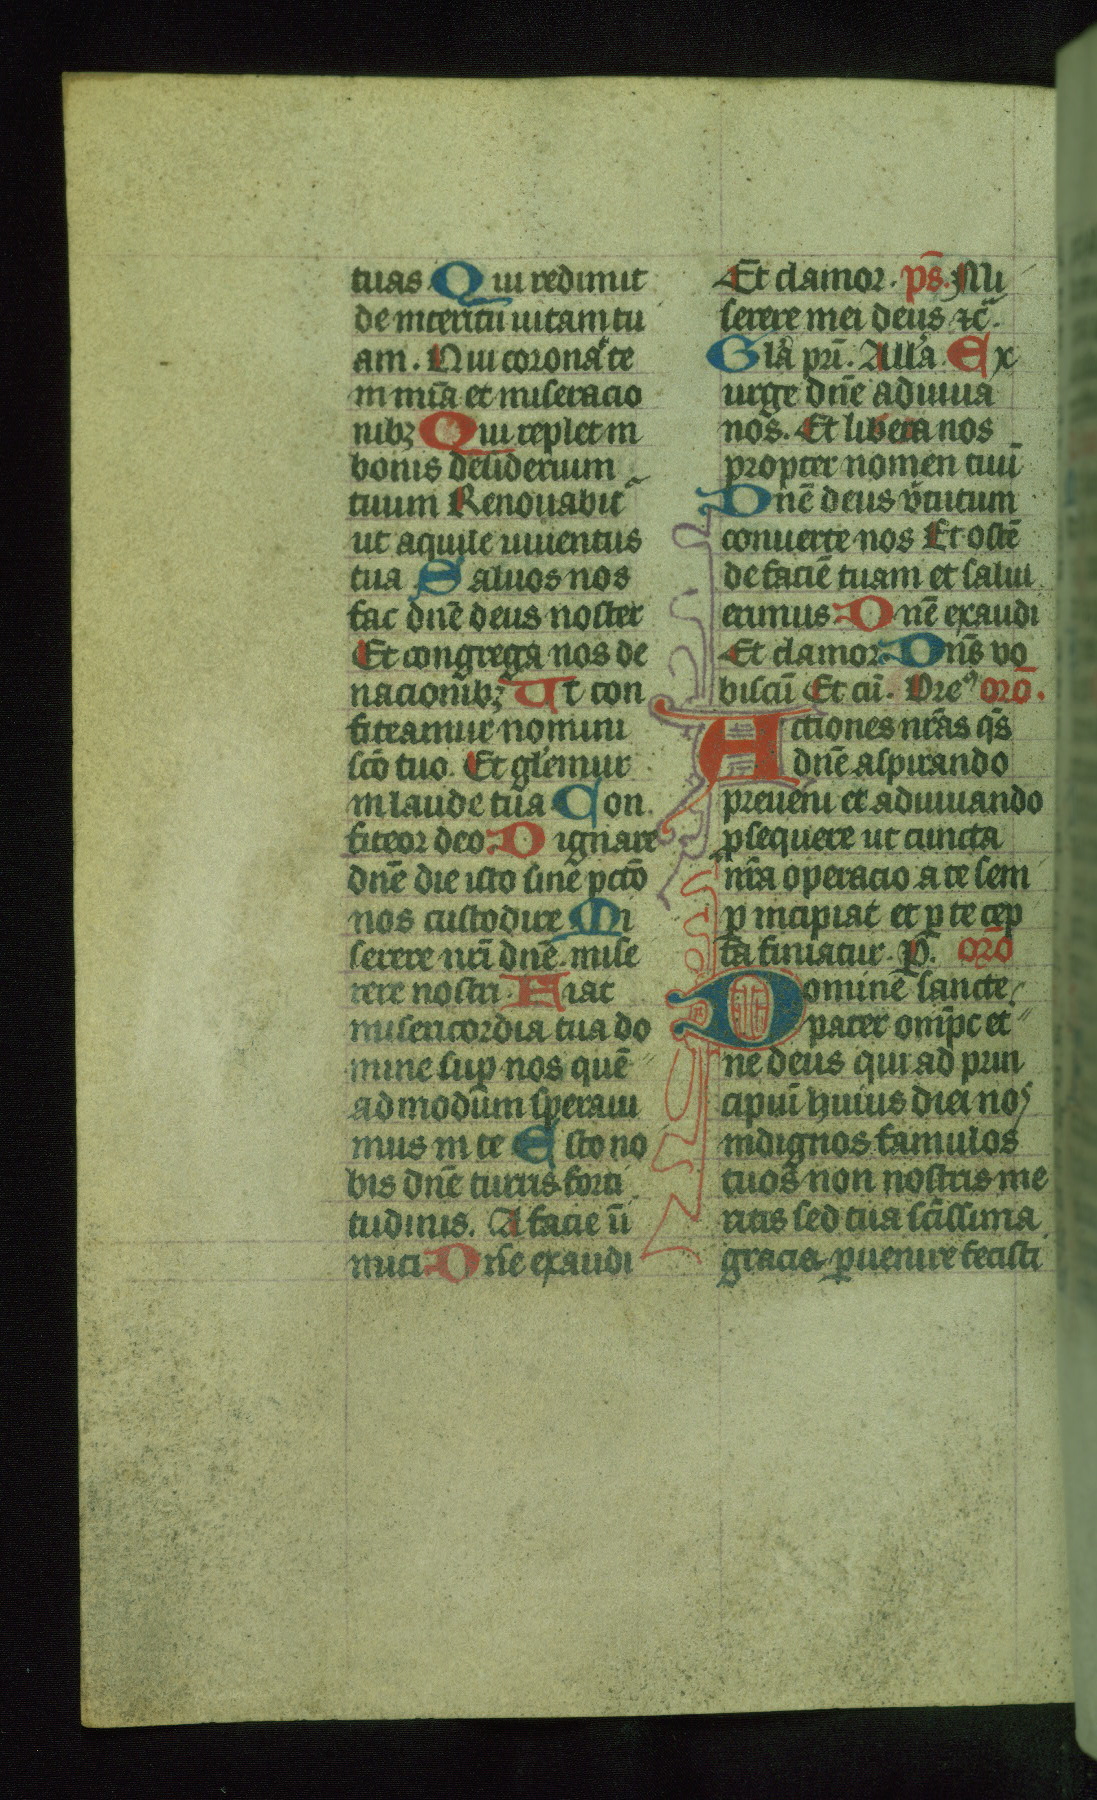 tuas Qui redimit
de interitū uitam tu
am. Qui coronat te
in mīa et miseracio
nibꝫ Qui replet in
bonis desiderium
tuum Renouabit᷑
ut aquile iuuentus
tua Saluos nos
fac dn̄e deus noster
Et congrega nos de
nacionibꝫ Ut con
fiteamur nomini
sc̄o tuo. Et gl'emur
in laude tua Con
fiteor deo. Dignare
dn̄e die isto sine pc̄cō
nos custodire Mi
serere nr̄i dn̄e. mise
rere nostri. Fiat
misericordia tua do
mine sup nos quē
admodum speraui
mus in te Esto no
bis dn̄e turris forti
tudinis. A facie ūi
mici Dn̄e exaudi
Et clamor. ps̄. Mi
serere mei deus ⁊c̄.
Gl'a pr̄i. All'a. Ex
urge dn̄e adiuua
nos. Et libera nos
propter nomen tuū
Dn̄e deus v̄tutum
conuerte nos Et ostē
de faciē tuam et salui
erimus Dn̄e exaudi
Et clamor. Dn̄s vo
biscū Et cū. Oreꝰ orō.
Actiones nr̄as qs̄
dn̄e aspirando
preueni et adiuuando
ꝓsequere ut cuncta
nr̄a operacio a te sem
ꝑ incipiat et ꝑ te cep
ta finiatur. P̄. orō
Domine sancte
pater om̄pc et
ne deus qui ad prin
cipiū huius diei nos
indignos famulos
tuos non nostris me
ritis sed tua sc̄issima
gracia ꝑuenire fecisti